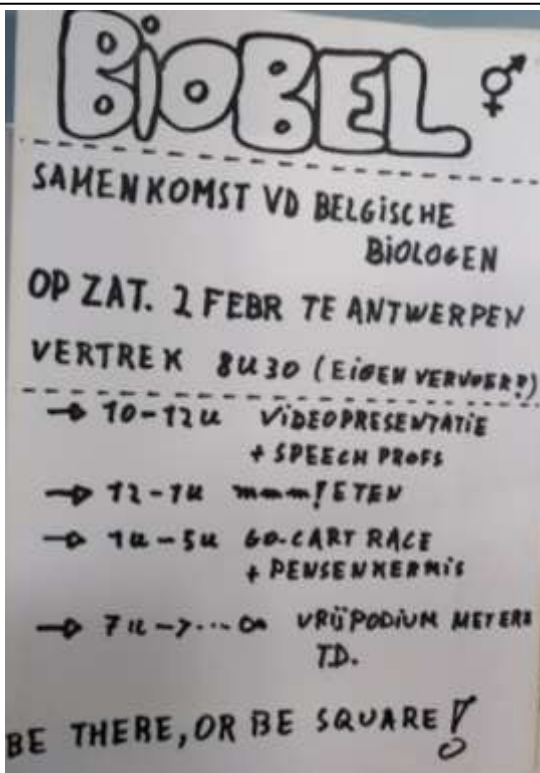 BIOBEL
SAMENKOMST VD BELGISCHE
BIOLOGEN
OP ZAT. 2 FEBR TE ANTWERPEN
VERTREK 8U30 (EIGEN VERVOER?)
→ 10-12U VIDEOPRESENTATIE
+ SPEECH PROFS
→ 12-1U mmm! ETEN
→ 1U-5U GO-CART RACE
+ PENSENKERMIS
→ 7U-7... VRIJPODIUM
T.D.
BE THERE, OR BE SQUARE!